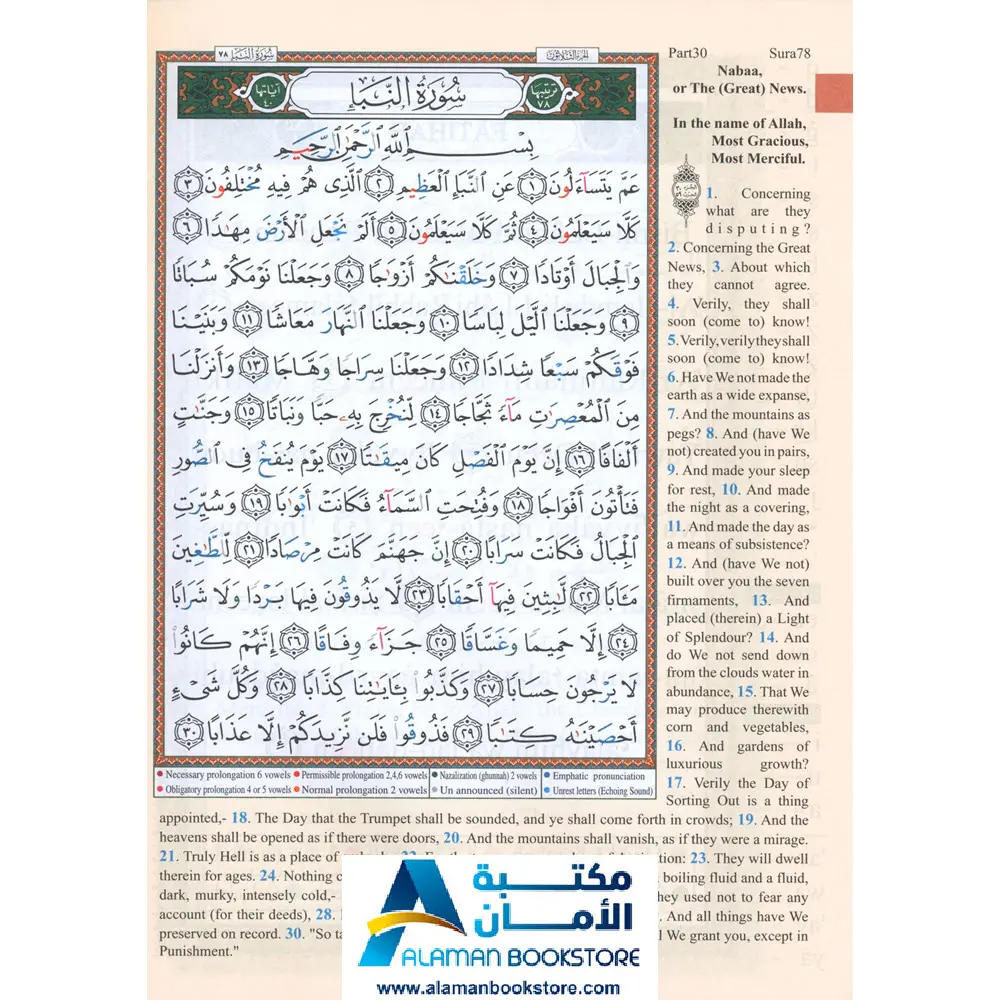 سورة النبإ ٧٨
الجزء الثلاثون
Part30 Sura78
Nabaa,
or The (Great) News.
آياتها ٤٠
سُورَةُ النَّبَإِ
ترتيبها ٧٨
بِسْمِ اللَّهِ الرَّحْمَٰنِ الرَّحِيمِ
عَمَّ يَتَسَآءَلُونَ ١ عَنِ النَّبَإِ الْعَظِيمِ ٢ الَّذِى هُمْ فِيهِ مُخْتَلِفُونَ ٣
كَلَّا سَيَعْلَمُونَ ٤ ثُمَّ كَلَّا سَيَعْلَمُونَ ٥ أَلَمْ نَجْعَلِ الْأَرْضَ مِهَٰدًا ٦
وَالْجِبَالَ أَوْتَادًا ٧ وَخَلَقْنَٰكُمْ أَزْوَٰجًا ٨ وَجَعَلْنَا نَوْمَكُمْ سُبَاتًا
٩ وَجَعَلْنَا الَّيْلَ لِبَاسًا ١٠ وَجَعَلْنَا النَّهَارَ مَعَاشًا ١١ وَبَنَيْنَا
فَوْقَكُمْ سَبْعًا شِدَادًا ١٢ وَجَعَلْنَا سِرَاجًا وَهَّاجًا ١٣ وَأَنزَلْنَا
مِنَ الْمُعْصِرَٰتِ مَآءً ثَجَّاجًا ١٤ لِّنُخْرِجَ بِهِۦ حَبًّا وَنَبَاتًا ١٥ وَجَنَّٰتٍ
أَلْفَافًا ١٦ إِنَّ يَوْمَ الْفَصْلِ كَانَ مِيقَٰتًا ١٧ يَوْمَ يُنفَخُ فِى الصُّورِ
فَتَأْتُونَ أَفْوَاجًا ١٨ وَفُتِحَتِ السَّمَآءُ فَكَانَتْ أَبْوَٰبًا ١٩ وَسُيِّرَتِ
الْجِبَالُ فَكَانَتْ سَرَابًا ٢٠ إِنَّ جَهَنَّمَ كَانَتْ مِرْصَادًا ٢١ لِّلطَّٰغِينَ
مَـَٔابًا ٢٢ لَّٰبِثِينَ فِيهَآ أَحْقَابًا ٢٣ لَّا يَذُوقُونَ فِيهَا بَرْدًا وَلَا شَرَابًا
٢٤ إِلَّا حَمِيمًا وَغَسَّاقًا ٢٥ جَزَآءً وِفَاقًا ٢٦ إِنَّهُمْ كَانُوا۟
لَا يَرْجُونَ حِسَابًا ٢٧ وَكَذَّبُوا۟ بِـَٔايَٰتِنَا كِذَّابًا ٢٨ وَكُلَّ شَىْءٍ
أَحْصَيْنَٰهُ كِتَٰبًا ٢٩ فَذُوقُوا۟ فَلَن نَّزِيدَكُمْ إِلَّا عَذَابًا ٣٠
Necessary prolongation 6 vowels Permissible prolongation 2,4,6 vowels Nazalization (ghunnah) 2 vowels Emphatic pronunciation
Obligatory prolongation 4 or 5 vowels Normal prolongation 2 vowels Un announced (silent) Unrest letters (Echoing Sound)
In the name of Allah,
Most Gracious,
Most Merciful.
1. Concerning
what are they
disputing?
2. Concerning the Great
News, 3. About which
they cannot agree.
4. Verily, they shall
soon (come to) know!
5. Verily, verily they shall
soon (come to) know!
6. Have We not made the
earth as a wide expanse,
7. And the mountains as
pegs? 8. And (have We
not) created you in pairs,
9. And made your sleep
for rest, 10. And made
the night as a covering,
11. And made the day as
a means of subsistence?
12. And (have We not)
built over you the seven
firmaments, 13. And
placed (therein) a Light
of Splendour? 14. And
do We not send down
from the clouds water in
abundance, 15. That We
may produce therewith
corn and vegetables,
16. And gardens of
luxurious growth?
17. Verily the Day of
Sorting Out is a thing
appointed,- 18. The Day that the Trumpet shall be sounded, and ye shall come forth in crowds; 19. And the
heavens shall be opened as if there were doors, 20. And the mountains shall vanish, as if they were a mirage.
21. Truly Hell is as a place of 23. They will dwell
therein for ages. 24. Nothing boiling fluid and a fluid,
dark, murky, intensely cold,- they used not to fear any
account (for their deeds), 28. And all things have We
preserved on record. 30. "So We grant you, except in
Punishment."
مكتبة
الأمان
ALAMAN BOOKSTORE
www.alamanbookstore.com